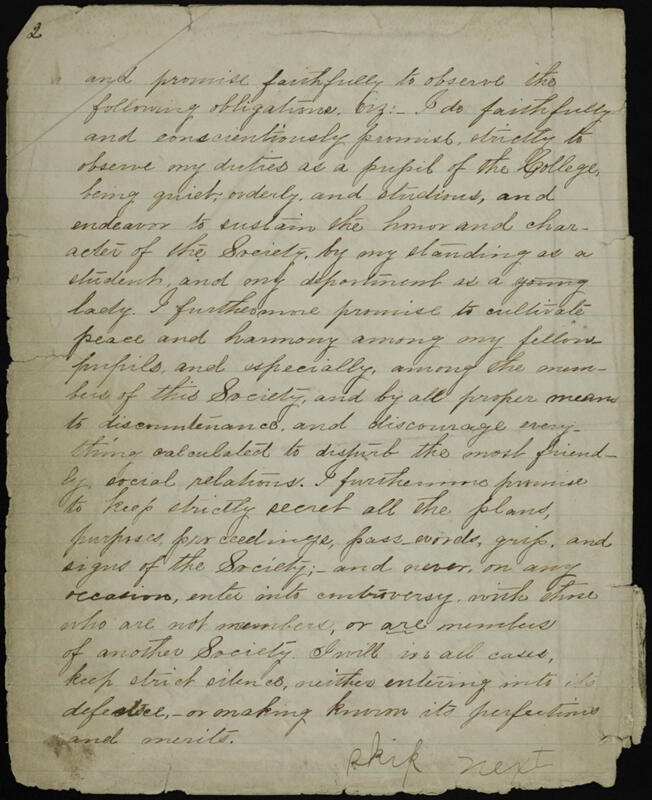 2
and promise faithfully to observe the
following obligations. Viz:- I do faithfully
and conscientiously promise, strictly to
observe my duties as a pupil of the College,
being quiet, orderly, and studious, and
endeavor to sustain the honor and char-
acter of the Society, by my standing as a
student, and my deportment as a young
lady. I furthermore promise to cultivate
peace and harmony among my fellow-
pupils, and especially, among the mem-
bers of this Society, and by all proper means
to discountenance, and discourage every-
thing calculated to disturb the most friend-
ly social relations. I furthermore promise
to keep strictly secret all the plans,
purposes, proceedings, pass-words, grip, and
signs of the Society;- and never, on any
occasion, enter into controversy with those
who are not members, or are members
of another Society. I will in all cases,
keep strict silence, neither entering into its
defence,- or making known its perfections
and merits.
skip next